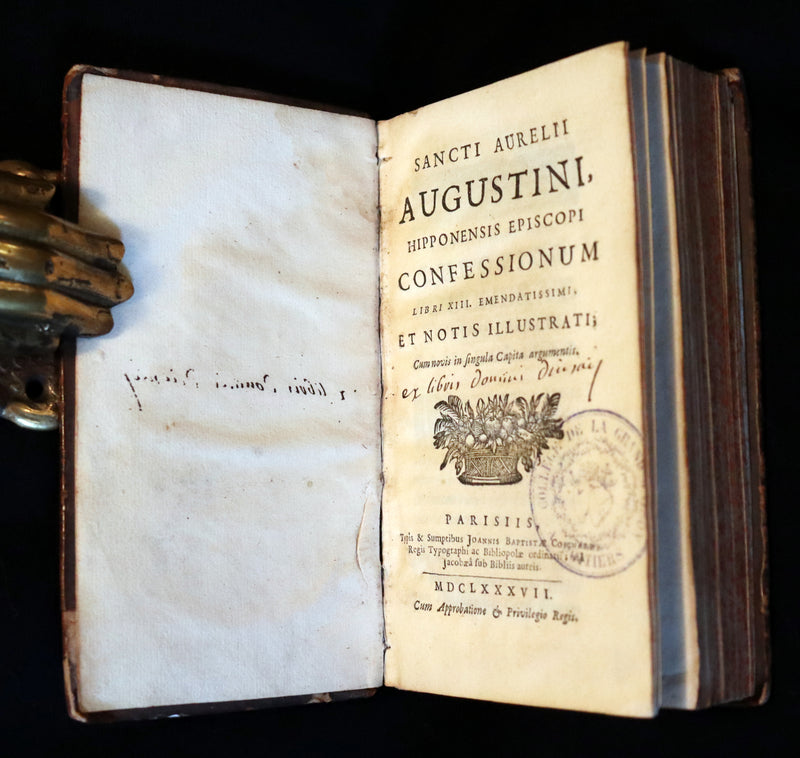 SANCTI AURELII
AUGUSTINI,
HIPPONENSIS EPISCOPI
CONFESSIONUM
LIBRI XIII. EMENDATISSIMI,
ET NOTIS ILLUSTRATI;
Cum novis in singula Capita argumentis.
ex libris domini
COLLEGE DE LA GRAN
TIERS
PARISIIS,
Typis & Sumptibus JOANNIS BAPTISTÆ
Regis Typographi ac Bibliopolæ ordinarii,
Jacobæâ sub Bibliis aureis.
MDCLXXXVII.
Cum Approbatione & Privilegio Regis.